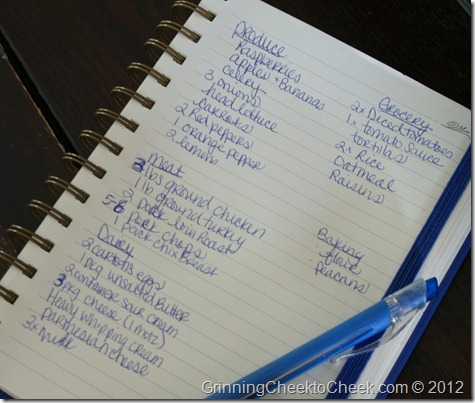 Produce
Raspberries
apples + Bananas
celery
3 onions
head lettuce
carrots
2 Red peppers
1 orange pepper
2 lemons
meat
3 lbs ground chicken
1 lb ground turkey
2 pork loin Roast
5-6 pork chops
1 pack chix Breast
Dairy
2 cartons eggs
1 pkg unsalted Butter
2 containge sour cream
3 pkg cheese (1 motz)
Heavy whipping cream
parmesian cheese
3x milk
Grocery
2x Diced tomatoes
1x tomato sauce
tortillas
2x Rice
Oatmeal
Raisins
Baking
flour
peacans
GrinningCheektoCheek.com © 2012